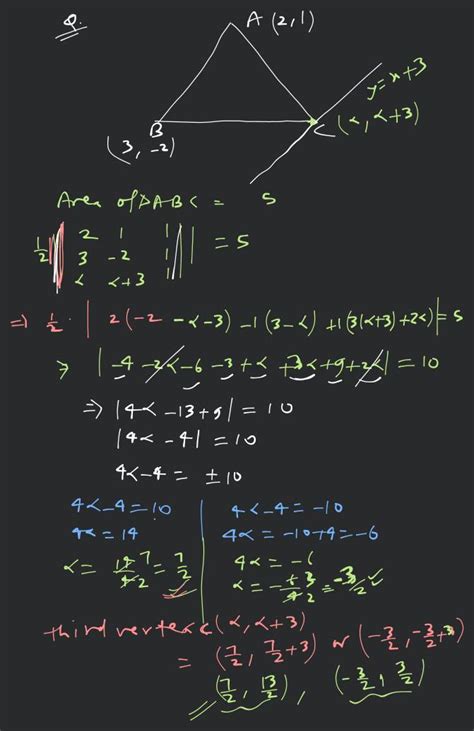 Q.
A (2,1)
y=x+3
B
(3, -2)
C (α, α+3)
Area of ΔABC = 5
1/2 || 2 1 1 || = 5
3 -2 1
α α+3 1
⇒ 1/2 · | 2(-2 -α-3) -1(3-α) +1(3(α+3)+2α)| = 5
⇒ |-4 -2α -6 -3+α +3α+9+2α| = 10
⇒ |4α -13+9| = 10
|4α -4| = 10
4α-4 = ±10
4α-4=10
4α=14
α = 14/4 = 7/2
4α-4 = -10
4α = -10+4 = -6
4α = -6
α = -6/4 = -3/2
third vertex C(α, α+3)
= (7/2, 7/2+3) or (-3/2, -3/2+3)
(7/2, 13/2), (-3/2, 3/2)